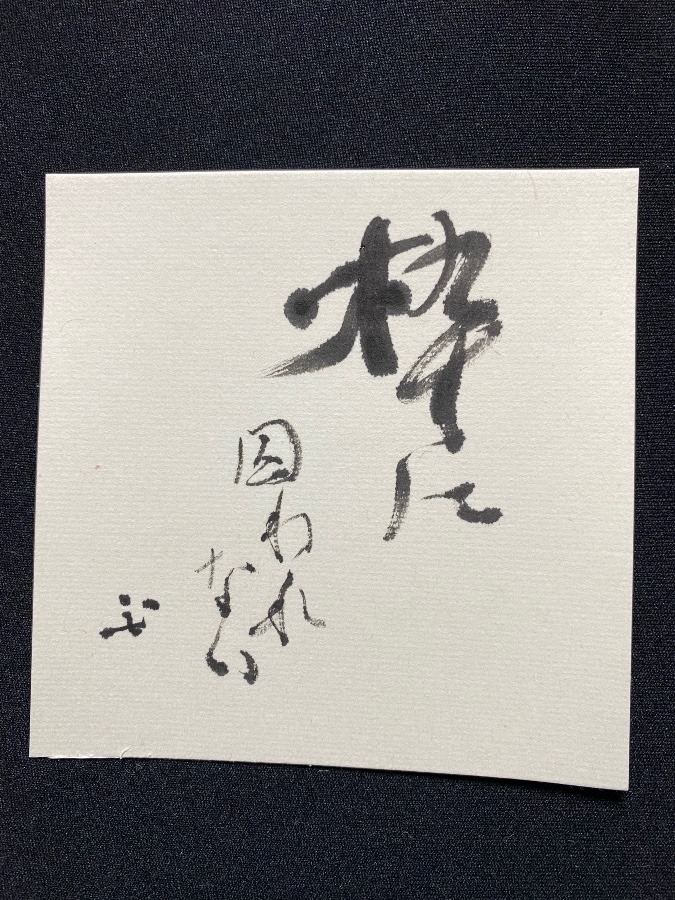 枠に
囚われ
ない